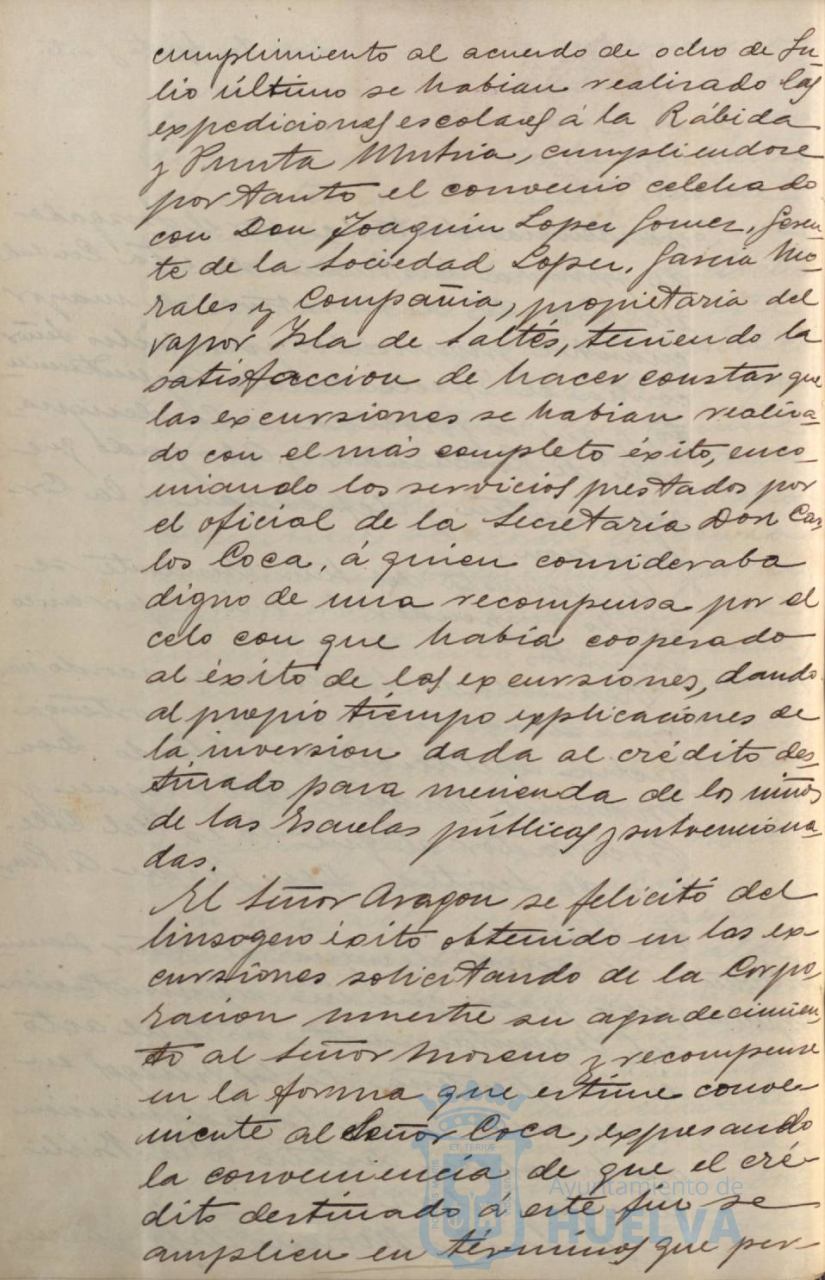 cumplimiento al acuerdo de ocho de Ju-
lio último se habian realisado las
expediciones escolares á la Rábida
y Punta Umbria, cumpliendose
por tanto el convenio celebrado
con Don Joaquin Lopez Gomez, Geren-
te de la Sociedad Lopez, Garcia Mo-
rales y Compañia, propietaria del
vapor Isla de Saltés, teniendo la
satisfaccion de hacer constar que
las excursiones se habian realiza-
do con el más completo éxito, enco-
miando los servicios prestados por
el oficial de la Secretaria Don Car-
los Coca, á quien consideraba
digno de una recompensa por el
celo con que habia cooperado
al éxito de las excursiones, dando
al propio tiempo explicaciones de
la inversion dada al crédito des-
tinado para merienda de los niños
de las Escuelas públicas y subvenciona-
das.
El Señor Aragon se felicitó del
linsogero éxito obtenido en las ex-
cursiones solicitando de la Corpo-
racion muestre su agradecimien-
to al Señor Moreno y recompense
en la forma que estime conve-
niente al Señor Coca, expresando
la conveniencia de que el cré-
dito destinado á este fin se
amplíen en términos que per-
Ayuntamiento de
HUELVA